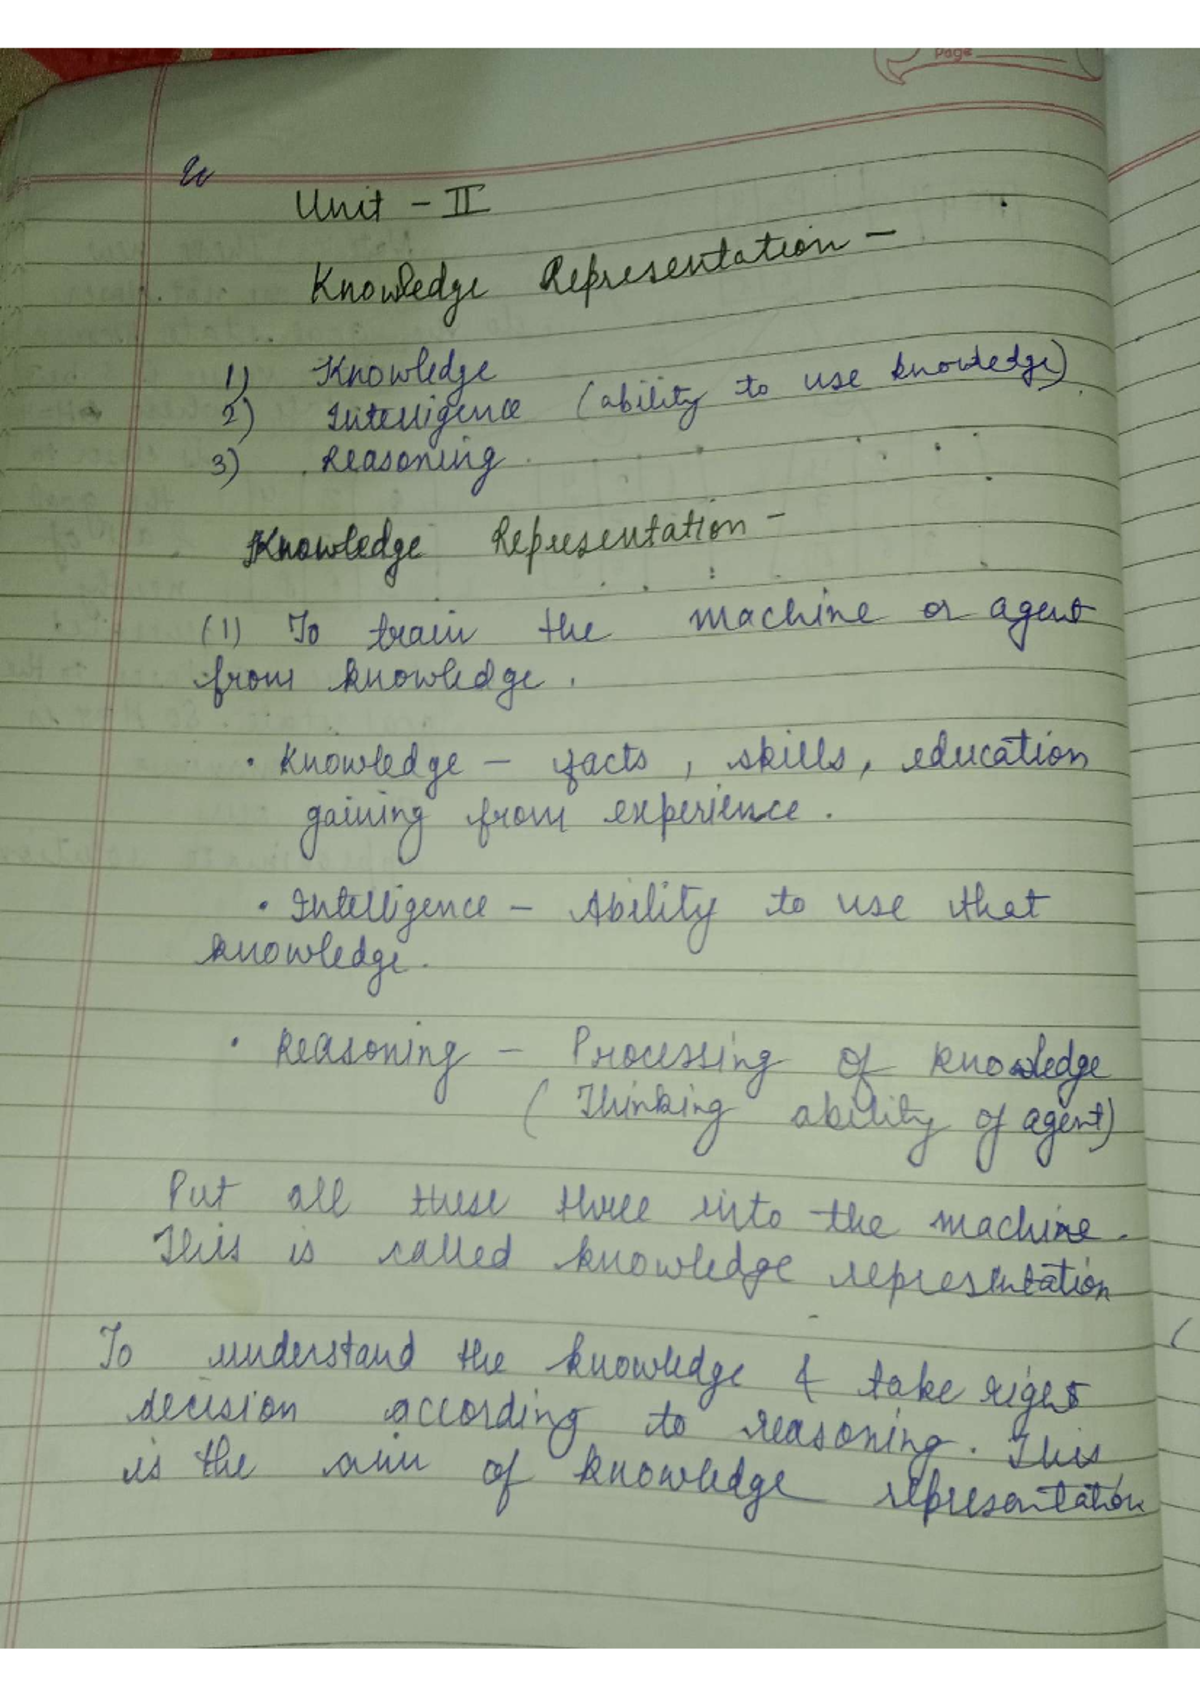 Page
Unit - II
Knowledge Representation -
1) Knowledge
2) Intelligence (ability to use knowledge)
3) Reasoning
Knowledge Representation -
(1) To train the machine or agent
from knowledge.
• Knowledge - facts, skills, education
gaining from experience.
• Intelligence - Ability to use that
knowledge.
• Reasoning - Processing of knowledge
(Thinking ability of agent)
Put all these three into the machine.
This is called knowledge representation
To understand the knowledge & take right
decision according to reasoning. This
is the aim of knowledge representation